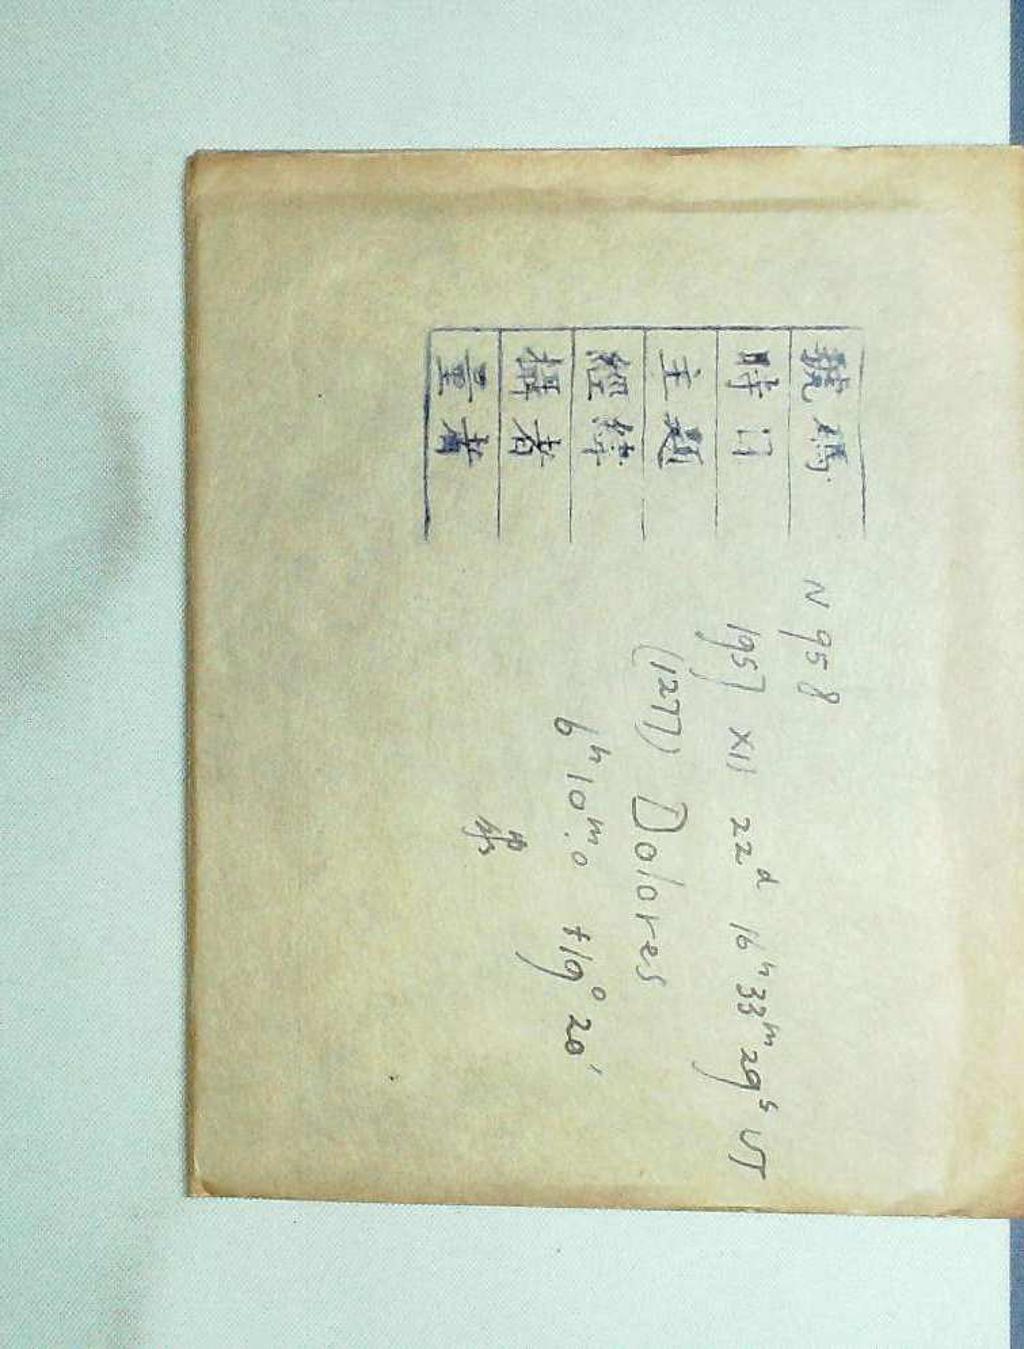 號碼 N958
时间 1957 XII 22ᵈ 16ʰ33ᵐ29ˢ UT
主題 (1277) Dolores
經緯 6ʰ10ᵐ.0 +19°20′
攝者
量者